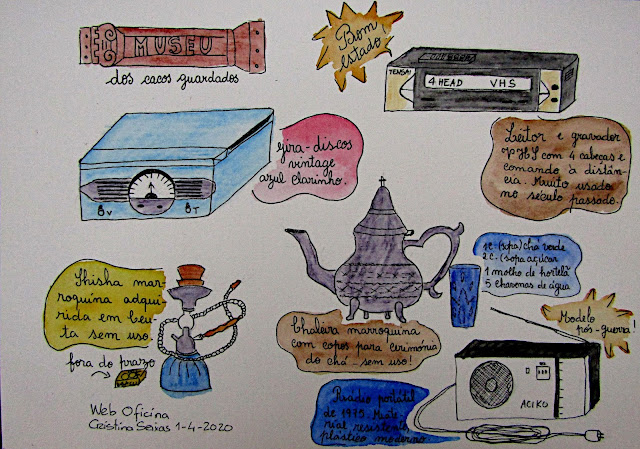 MUSEU
dos cacos guardados
Bom
estado!
TENSAI
4 HEAD VHS
Gira-discos
vintage
azul clarinho.
V T
Leitor e gravador
VHS com 4 cabeças e
comando à distân-
cia. Muito usado
no século passado.
1 C-(sopa) chá verde
2 C-(sopa açúcar
1 molho de hortelã
5 chavonas de água
Shisha mar-
roquina adqui-
rida em Ceu-
ta sem uso.
fora do prazo
Chaleira marroquina
com copos para cerimónia
do chá - sem uso!
Modelo
pós-guerra!
Rádio portátil
de 1975. Mate
rial resistente,
plástico moderno
ACIKO
Web Oficina
Cristina Seixas 1-4-2020